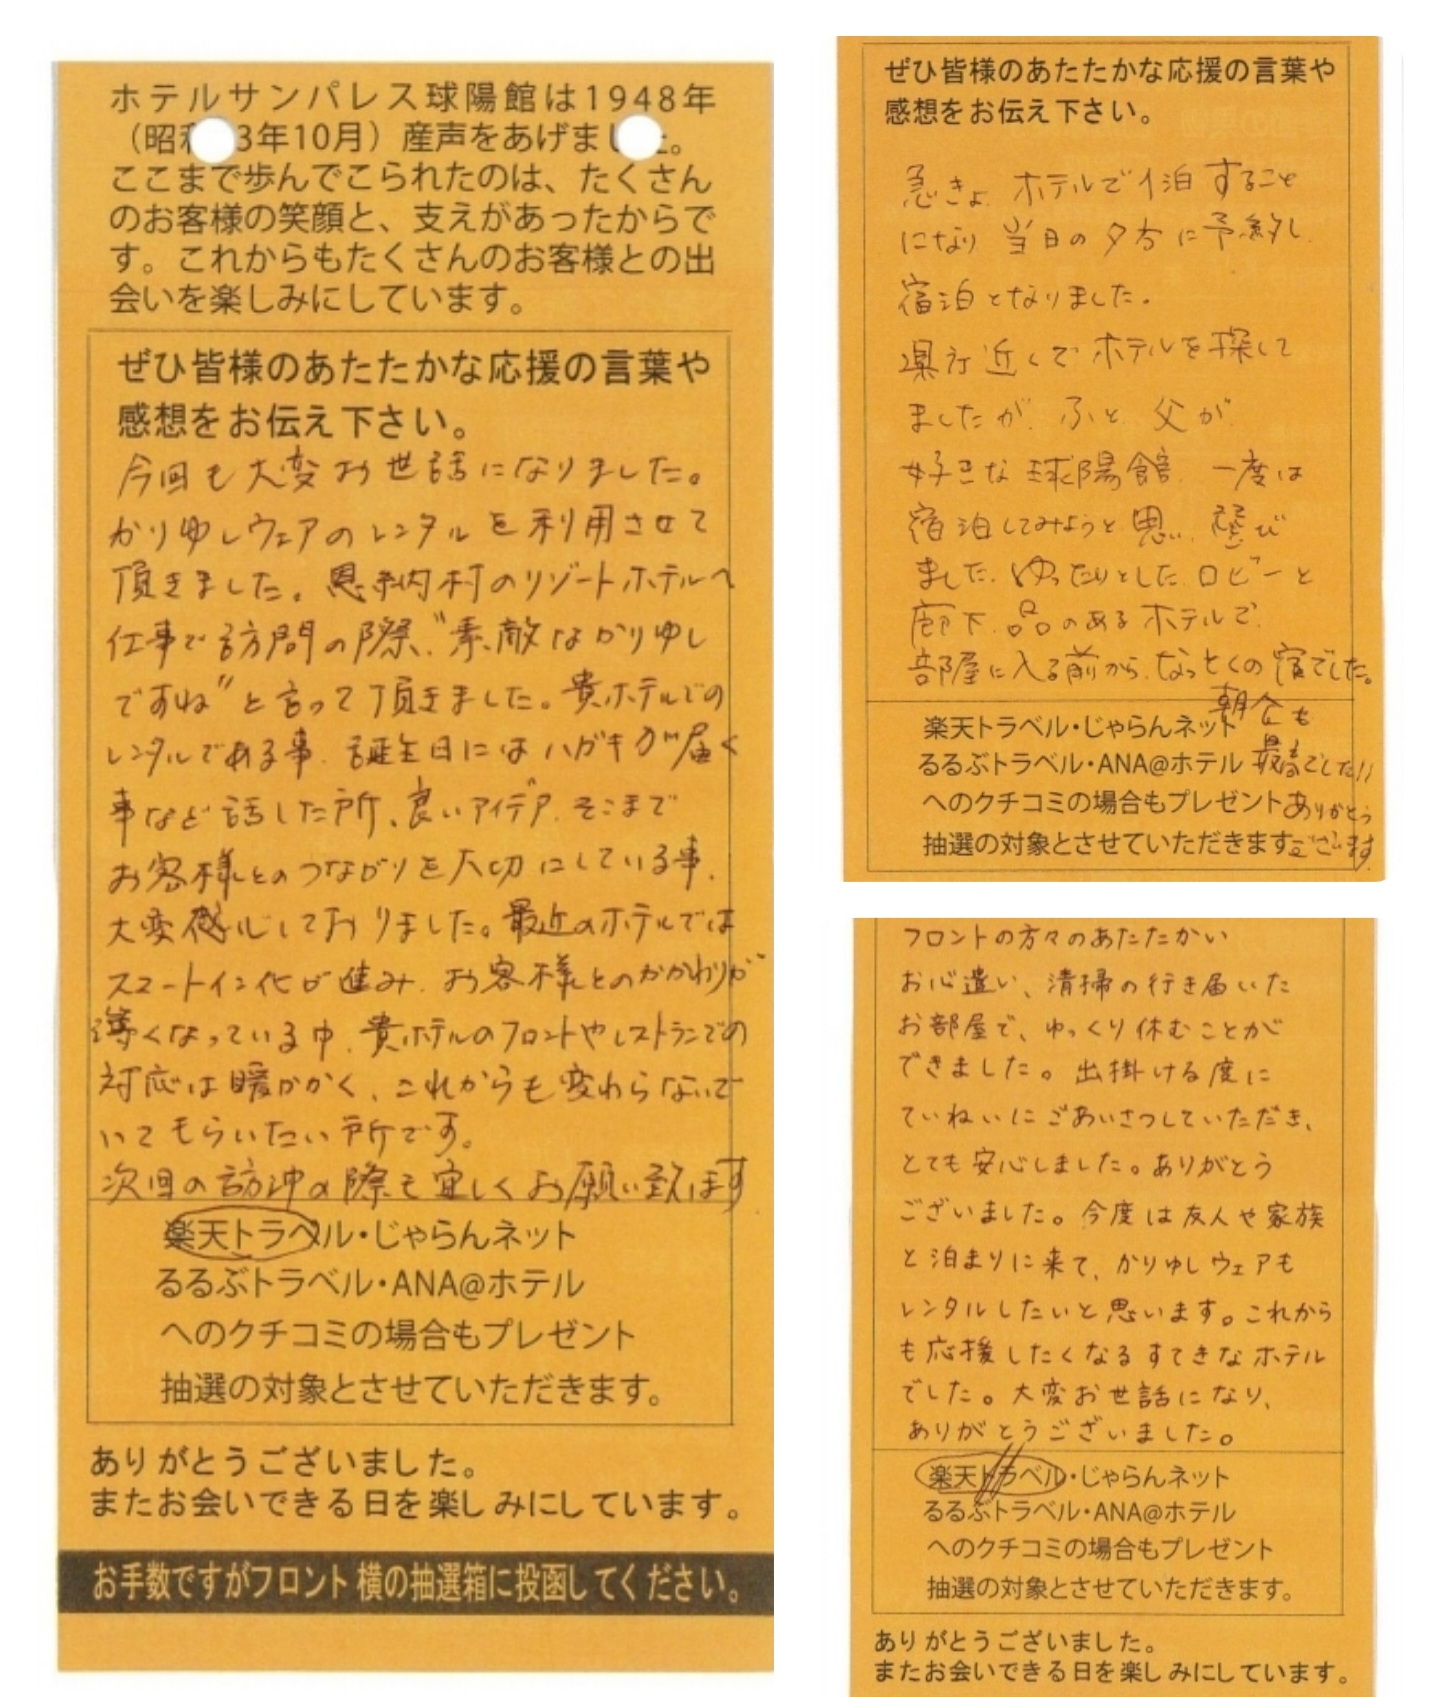 ホテルサンパレス球陽館は1948年
（昭和 3年10月）産声をあげました。
ここまで歩んでこられたのは、たくさん
のお客様の笑顔と、支えがあったからで
す。これからもたくさんのお客様との出
会いを楽しみにしています。
ぜひ皆様のあたたかな応援の言葉や
感想をお伝え下さい。
今回も大変お世話になりました。
かりゆしウェアのレンタルを利用させて
頂きました。恩納村のリゾートホテルへ
仕事で訪問の際、"素敵なかりゆし
ですね"と言って頂きました。貴ホテルでの
レンタルである事、誕生日にはハガキが届く
事など話した所、良いアイデア、そこまで
お客様とのつながりを大切にしている事、
大変感心しておりました。最近のホテルでは
スマートイン化が進み、お客様とのかかわりが
薄くなっている中、貴ホテルのフロントやレストランでの
対応は暖かかく、これからも変わらないで
いてもらいたい所です。
次回の訪沖の際も宜しくお願い致します
楽天トラベル・じゃらんネット
るるぶトラベル・ANA@ホテル
へのクチコミの場合もプレゼント
抽選の対象とさせていただきます。
ありがとうございました。
またお会いできる日を楽しみにしています。
お手数ですがフロント横の抽選箱に投函してください。
ぜひ皆様のあたたかな応援の言葉や
感想をお伝え下さい。
急きょ ホテルで1泊すること
になり 当日の夕方に予約し
宿泊となりました。
県庁近くで ホテルを探して
ましたが、ふと、父が
好きな球陽館、一度は
宿泊してみようと思い、選び
ました。ゆったりとしたロビーと
廊下、品のあるホテルで、
部屋に入る前から、なっとくの宿でした。
朝食も
最高でした!!
ありがとう
ございます
楽天トラベル・じゃらんネット
るるぶトラベル・ANA@ホテル
へのクチコミの場合もプレゼント
抽選の対象とさせていただきます
フロントの方々のあたたかい
お心遣い、清掃の行き届いた
お部屋で、ゆっくり休むことが
できました。出掛ける度に
ていねいにごあいさつしていただき、
とても安心しました。ありがとう
ございました。今度は友人や家族
と泊まりに来て、かりゆしウェアも
レンタルしたいと思います。これから
も応援したくなるすてきなホテル
でした。大変お世話になり、
ありがとうございました。
楽天トラベル・じゃらんネット
るるぶトラベル・ANA@ホテル
へのクチコミの場合もプレゼント
抽選の対象とさせていただきます。
ありがとうございました。
またお会いできる日を楽しみにしています。